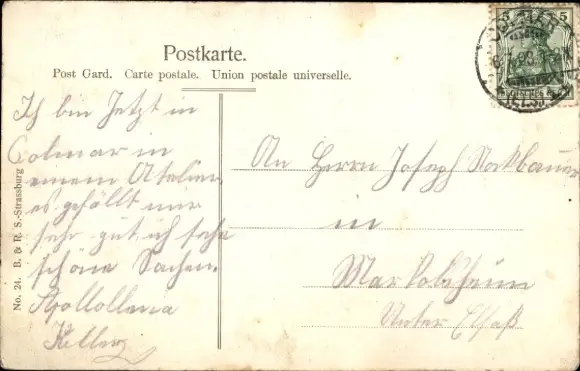 Postkarte.
Post Card. Carte postale. Union postale universelle.
Ich bin Jetzt in
Colmar in
einem Atelier
es gefällt mir
sehr gut, ich sehe
schöne Sachen.
Apollonia
Keller
An Herrn Joseph Stockbauer
in
Markolsheim
Unter Elsaß
No. 24. B. & R. S.-Strassburg
5 5
COLMAR